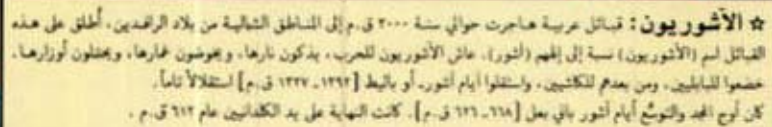 ☆ الآشوريون: قبائل عربية هاجرت حوالي سنة ٣٠٠٠ ق.م إلى المناطق الشمالية من بلاد الرافدين، أطلق على هذه
القبائل اسم (الآشوريون) نسبة إلى إلههم (آشور). عاش الآشوريون للحرب، يذكون نارها، ويخوضون غمارها، ويحملون أوزارها.
خضعوا للبابليين، ومن بعدهم للكاشيين، واستقلوا أيام آشور ـ أو باليط [١٣٩٢ ـ ١٣٣٧ ق.م] استقلالاً تاماً.
كان أوج المجد والتوسُّع أيام آشور باني بعل [٦٦٨ ـ ٦٢٦ ق.م]. كانت النهاية على يد الكلدانيين عام ٦١٢ ق.م.